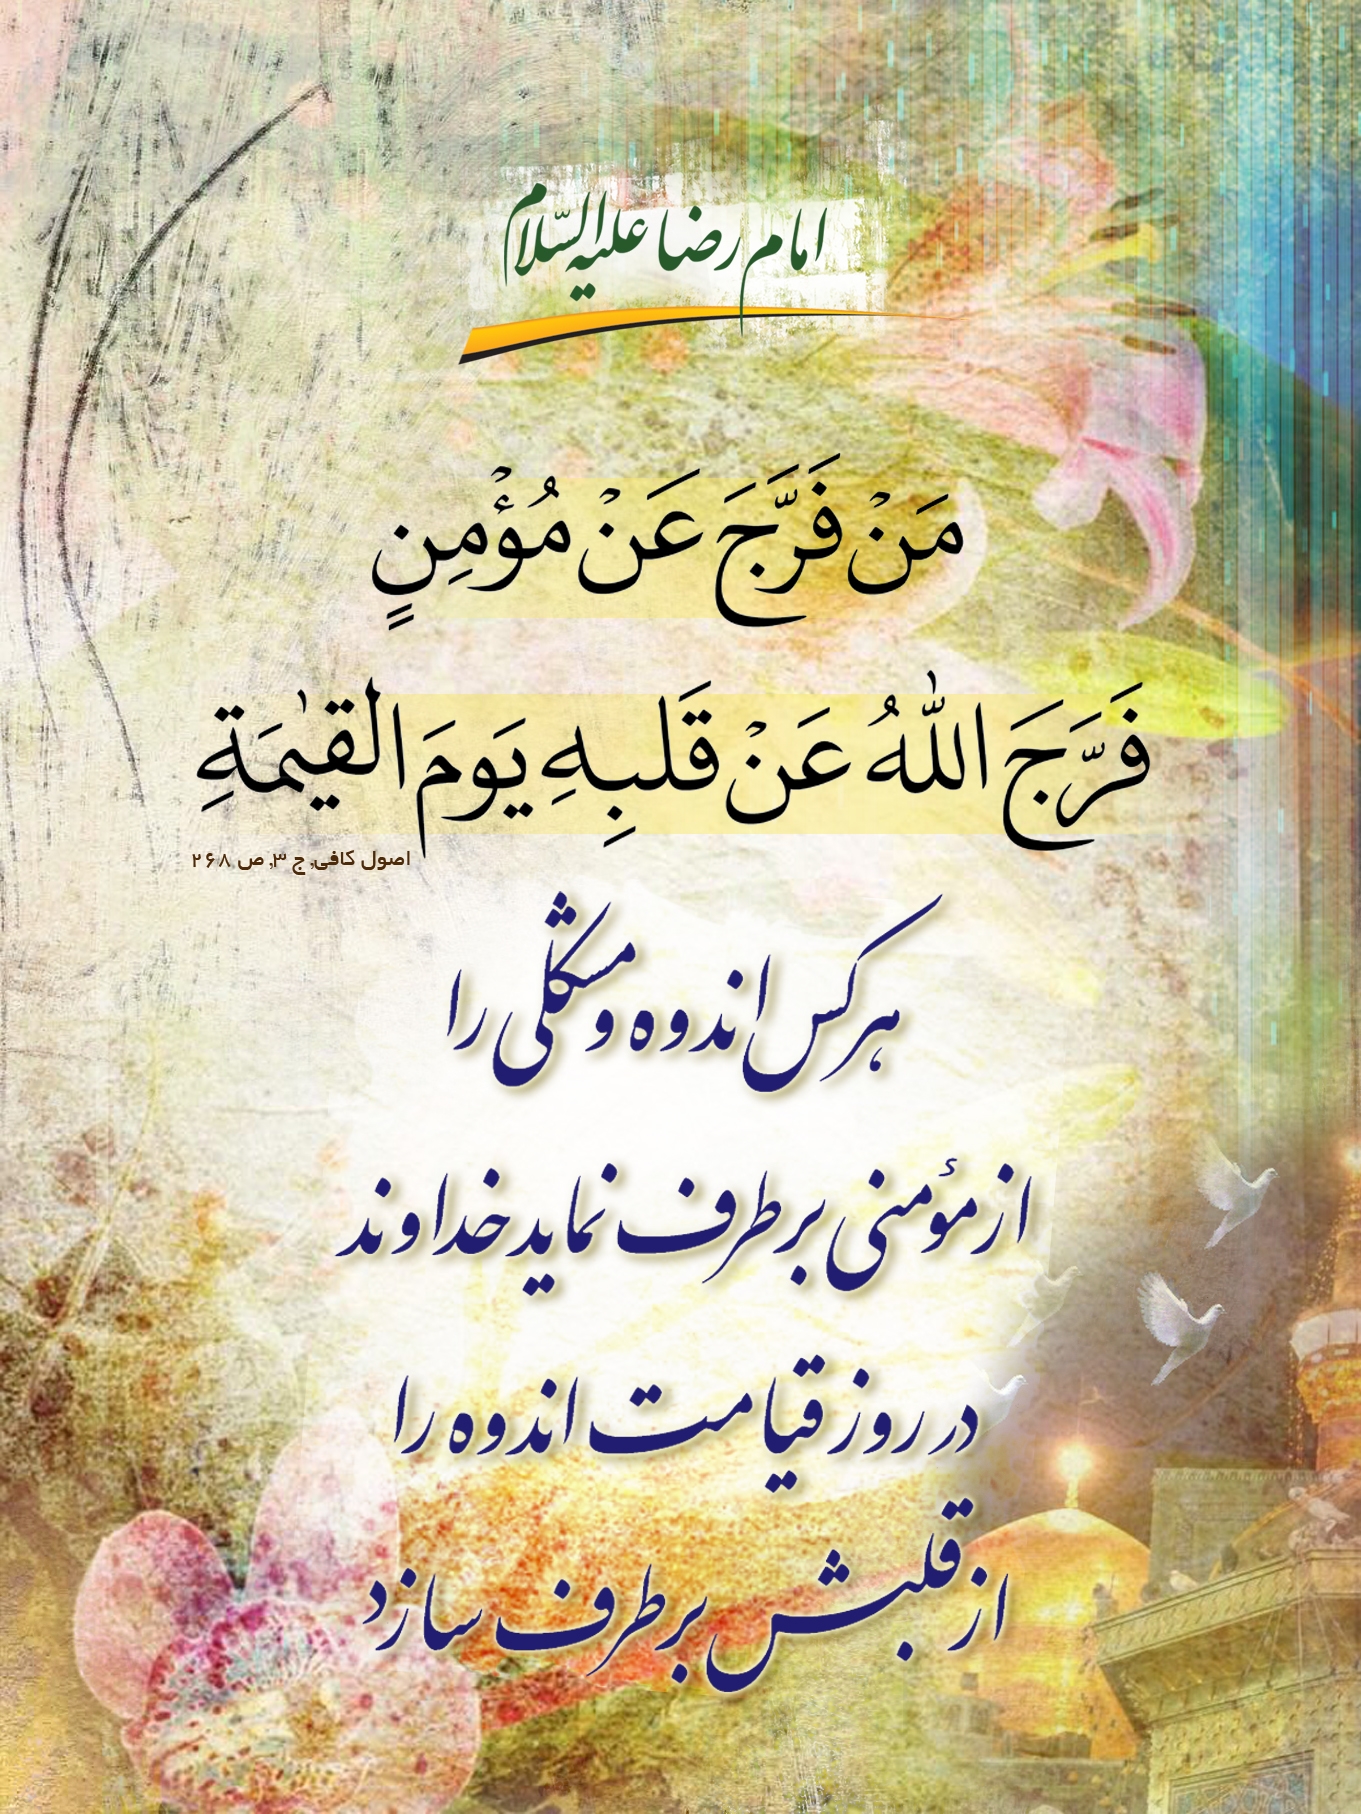 امام رضا علیه السّلام
مَنْ فَرَّجَ عَنْ مُؤْمِنٍ
فَرَّجَ اللّٰهُ عَنْ قَلبِهِ یَومَ القیٰمَةِ
اصول کافی، ج ۳، ص ۲۶۸
هر کس اندوه و مشکلی را
از مؤمنی بر طرف نماید خداوند
در روز قیامت اندوه را
از قلبش بر طرف سازد